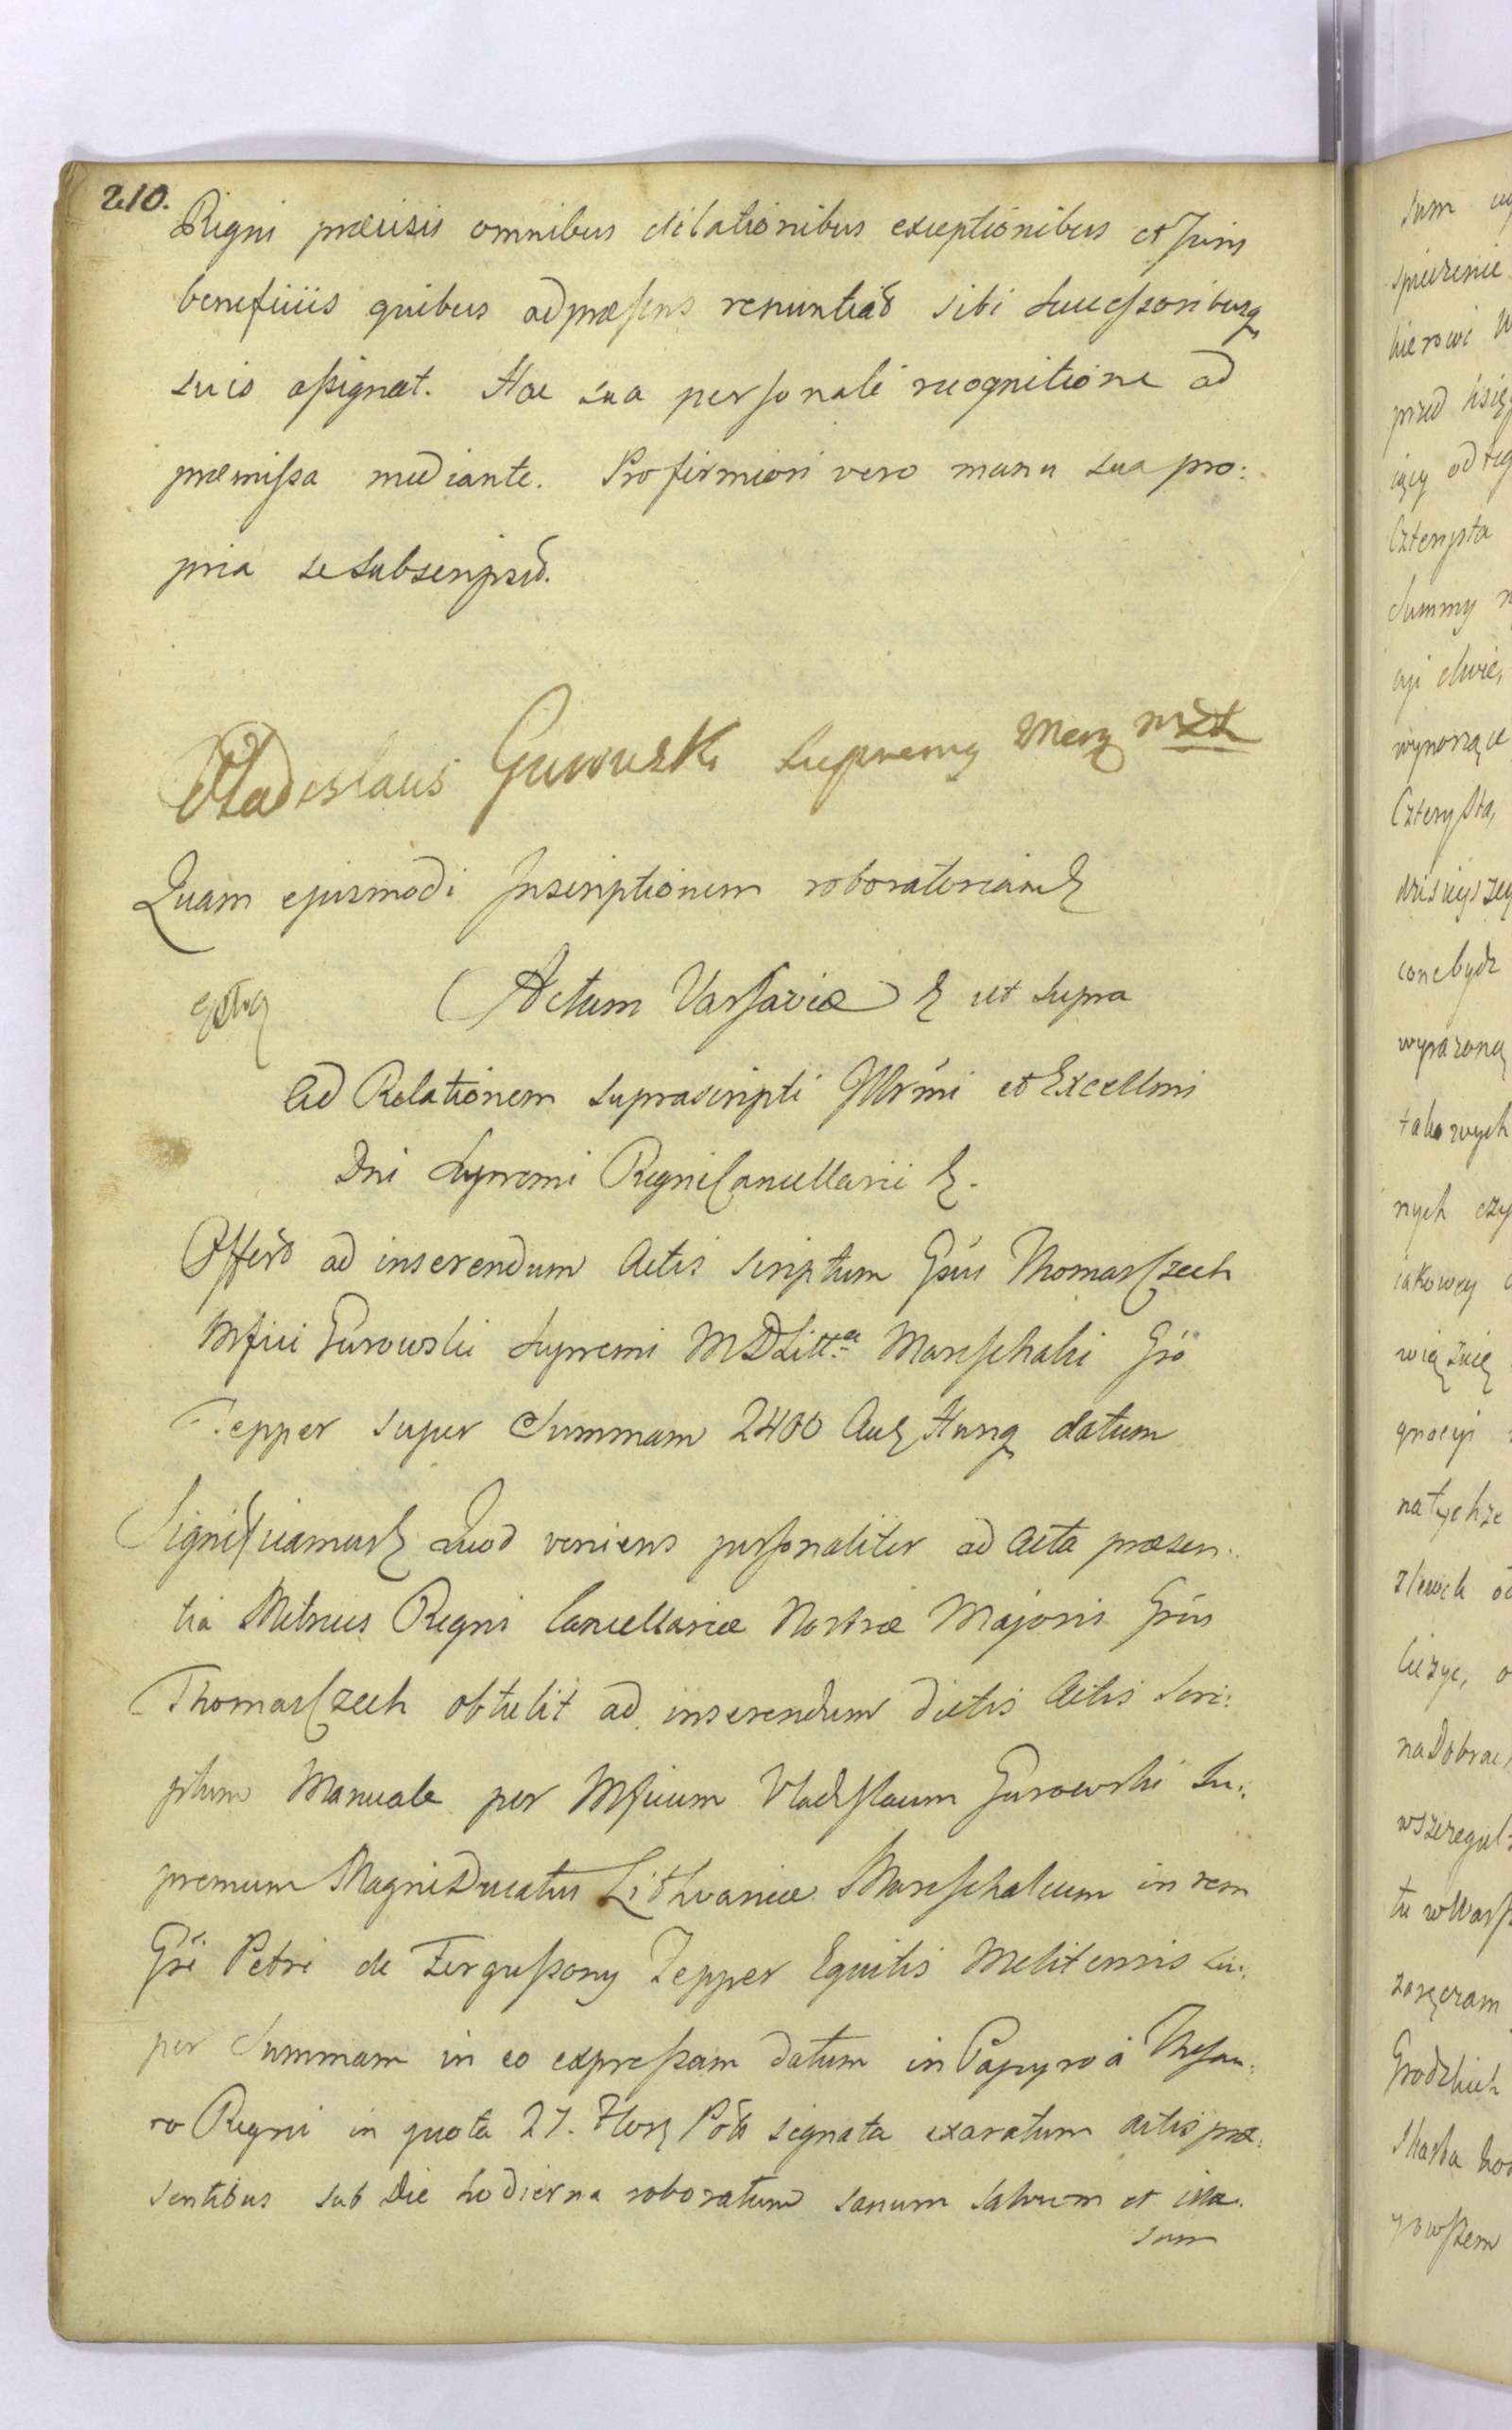 210.
Regni præcisis omnibus dilationibus exceptionibus et Juris
beneficiis quibus ad præsens renuntiat sibi Successoribusq
suis assignat. Hac sua personali recognitione ad
præmissa mediante. Pro firmiori vero manu sua pro:
pria se subscripsit.
Vladislaus Gurowski Supremg Marg
Quam ejusmodi Inscriptionem roboratoriam &
Actum Varsaviæ & ut supra
Ad Relationem suprascripti Illrmi et Excellmi
Dni Supremi Regni Cancellarii &.
Offert ad inserendum Actis scriptum Gsus Thomas Czech
Mfici Gurowski Supremi M D Litt.æ Mareschalci Gso
Tepper super Summam 2400 Au& Hung datum
Significamus & Quod veniens personaliter ad Acta præsen:
tia Metrices Regni Cancellariæ Nostræ Majoris Gsus
Thomas Czech obtulit ad inserendum dictis Actis Scri:
ptum Manuale per Mficum Vladislaum Gurowski Su:
premum Magni Ducatus Lithvaniæ Mareschalcum in rem
Gsi Petri de Fergussony Tepper Equitis Melitensis su:
per Summam in eo expressam datum in Papyro à Thesau:
ro Regni in quota 27. Flor& Pol signata exaratum Actis præ:
sentibus sub Die hodierna roboratum sanum salvum et illæ:
sum
sum
spieczenie
przed
Czterysta
Summy
wynoszące
Czterysta,
dzisieyszeg
wyrazoną
takowych
nych
iakowey
natychże
na Dobrac
tu w Warss
zaręczam
Grodzkich